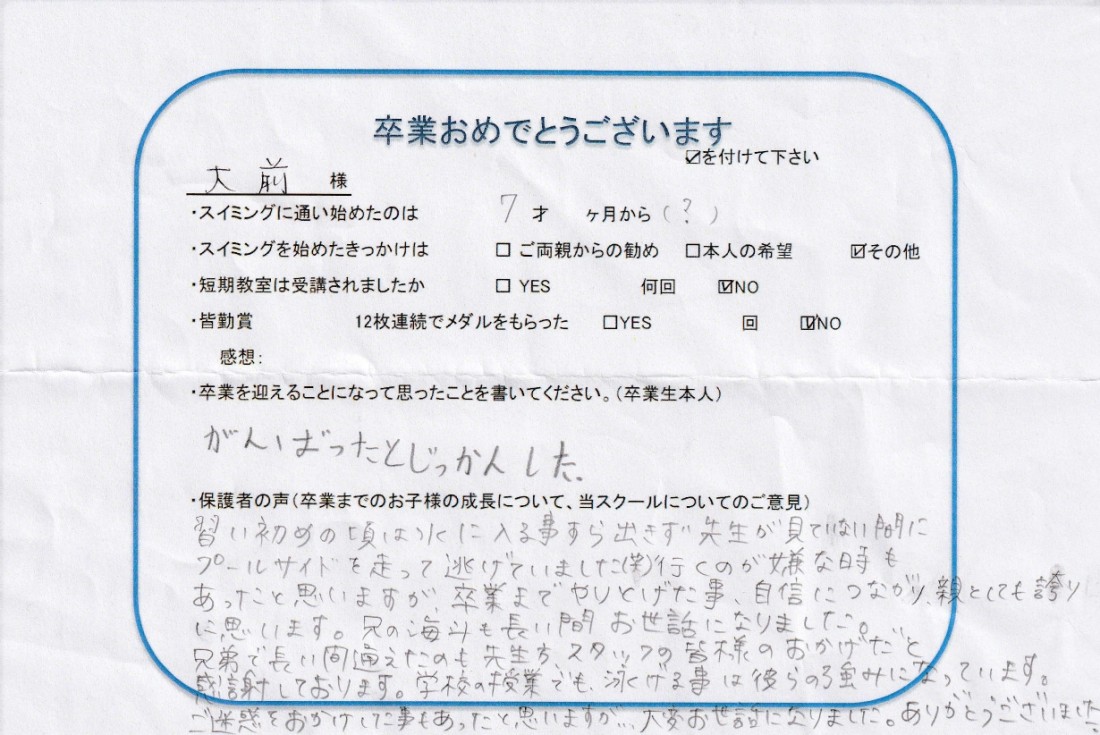 卒業おめでとうございます
☑を付けて下さい
大前 様
・スイミングに通い始めたのは 7 才 ヶ月から(?)
・スイミングを始めたきっかけは □ ご両親からの勧め □本人の希望 ☑その他
・短期教室は受講されましたか □ YES 何回 ☑NO
・皆勤賞 12枚連続でメダルをもらった □YES 回 ☑NO
感想:
・卒業を迎えることになって思ったことを書いてください。(卒業生本人)
がんばったとじっかんした。
・保護者の声(卒業までのお子様の成長について、当スクールについてのご意見)
習い初めの頃は水に入る事すら出きず先生が見ていない間に
プールサイドを走って逃げていました(笑)行くのが嫌な時も
あったと思いますが、卒業までやりとげた事、自信につながり、親としても誇り
に思います。兄の海斗も長い間お世話になりました。
兄弟で長い間通えたのも、先生方、スタッフの皆様のおかげだと
感謝しております。学校の授業でも、泳げる事は彼らの強みになっています。
ご迷惑をおかけした事もあったと思いますが…、大変お世話になりました。ありがとうございました